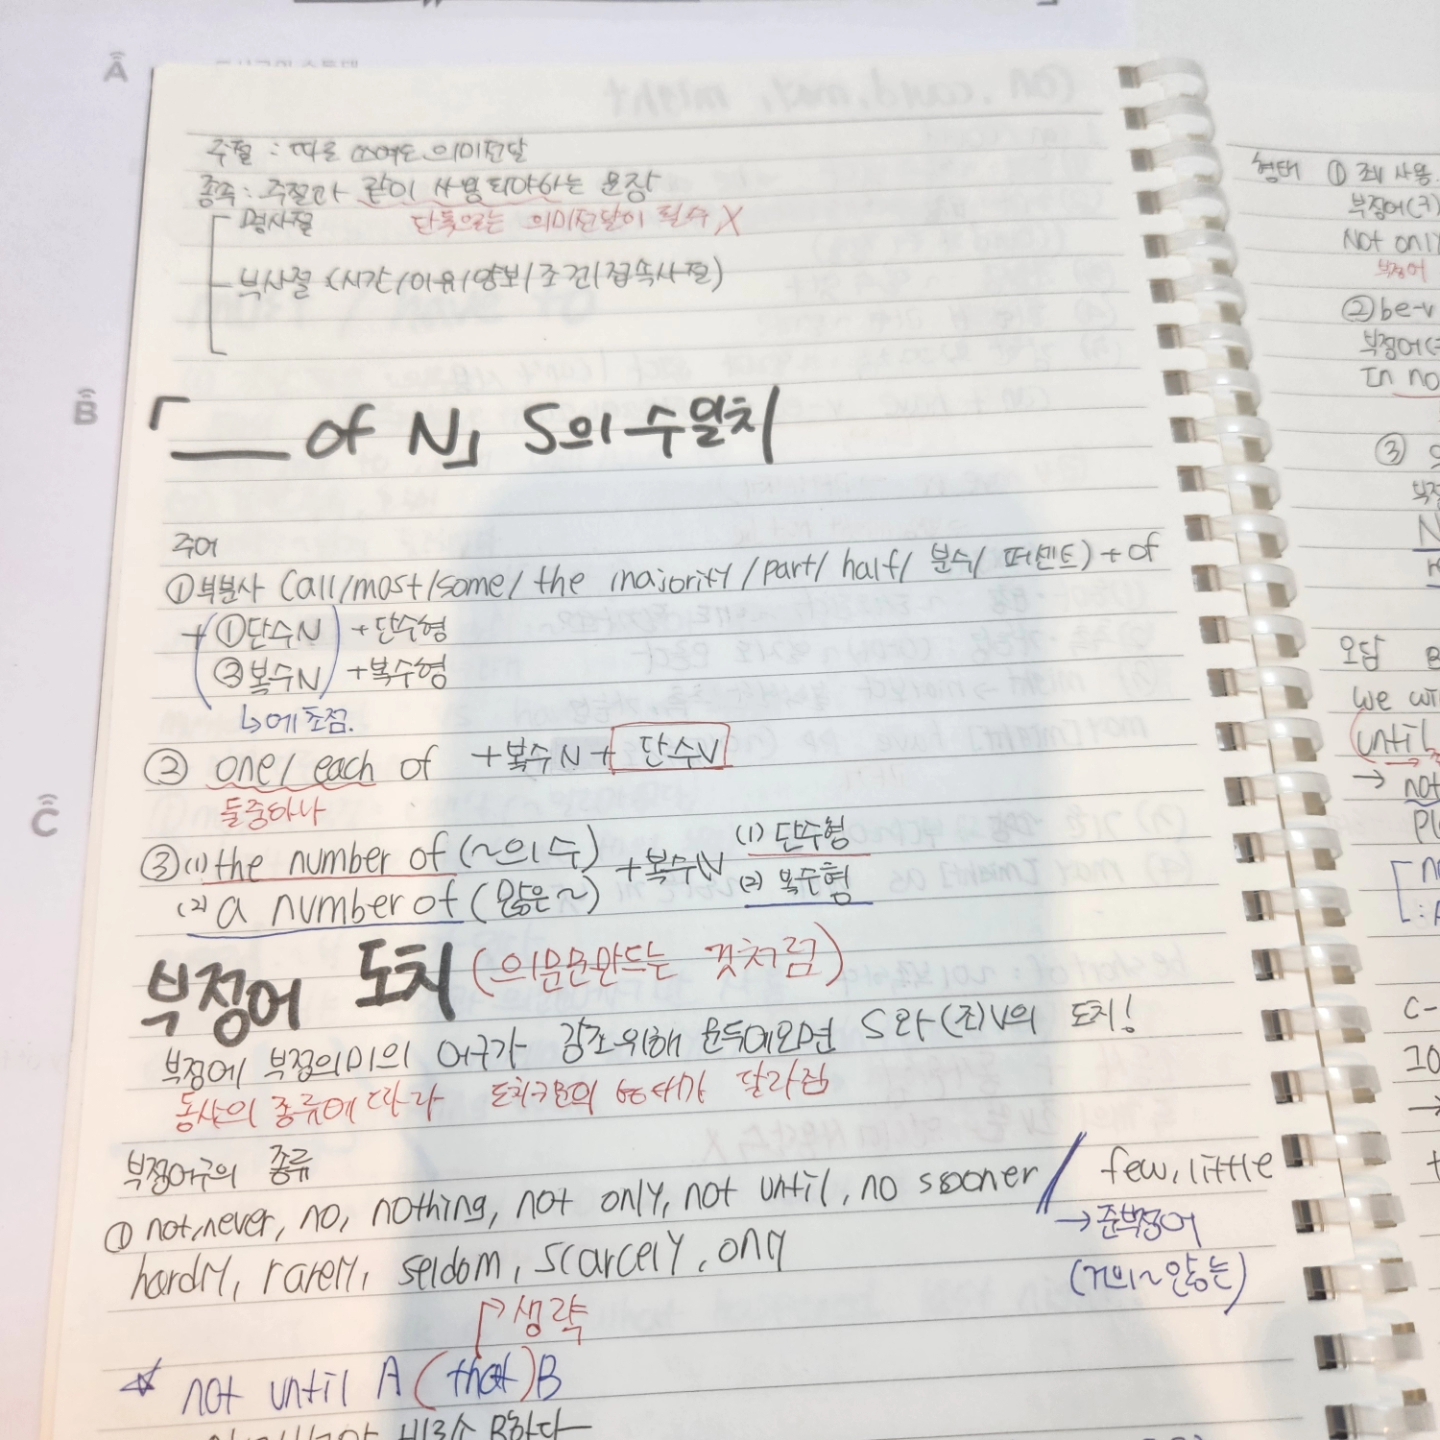 주절 : 따로 쓰여도 의미전달
종속 : 주절과 같이 사용되야하는 문장
명사절 단독으로는 의미전달이 될수 X
부사절 (시간/이유/양보/조건/접속사절)
「___ of N」 S의 수일치
주어
①부분사 (all/most/some/ the majority/part/ half/ 분수/ 퍼센트) + of
+ (①단수N) +단수형
(②복수N) +복수형
↳에 초점.
② one/ each of +복수N + 단수V
들중하나
③(1) the number of (~의 수) +복수N (1) 단수형
(2) a number of (많은~) (2) 복수형
부정어 도치 (의문문만드는 것처럼)
부정어 부정의미의 어구가 강조위해 문두에오면 S와 (조)V의 도치!
동사의 종류에 따라 도치구문의 형태가 달라짐
부정어구의 종류
① not, never, no, nothing, not only, not until, no sooner / few, little
→준부정어
hardly, rarely, seldom, scarcely, only
(거의~않는)
↱생략
☆ not until A (that) B
비로소 B하다
형태 ①
부정어(구)
Not only
부정어
②be-v
부정어(
In no
③
오답
we wi
until
→ not